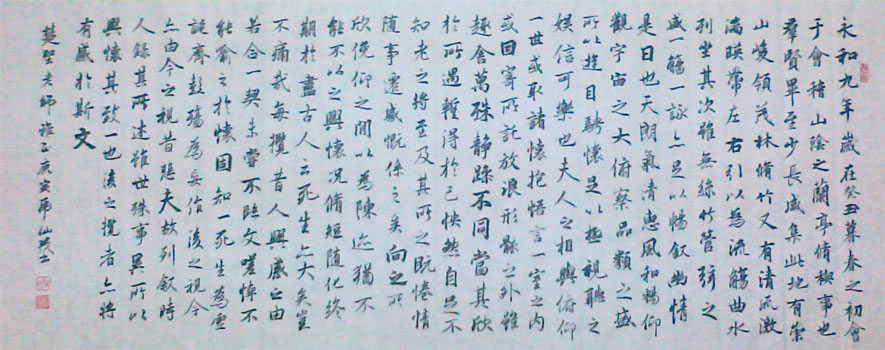 永和九年歲在癸丑暮春之初會
于會稽山陰之蘭亭脩稧事也
羣賢畢至少長咸集此地有崇
山峻領茂林脩竹又有清流激
湍暎帶左右引以為流觴曲水
列坐其次雖無絲竹管弦之
盛一觴一詠亦足以暢敘幽情
是日也天朗氣清惠風和暢仰
觀宇宙之大俯察品類之盛
所以遊目騁懷足以極視聽之
娛信可樂也夫人之相與俯仰
一世或取諸懷抱悟言一室之內
或因寄所託放浪形骸之外雖
趣舍萬殊靜躁不同當其欣
於所遇蹔得於己怏然自足不
知老之將至及其所之既惓情
隨事遷感慨係之矣向之所
欣俛仰之間以為陳迹猶不
能不以之興懷况脩短隨化終
期於盡古人云死生亦大矣豈
不痛哉每攬昔人興感之由
若合一契未嘗不臨文嗟悼不
能喻之於懷固知一死生為虛
誕齊彭殤為妄作後之視今
亦由今之視昔悲夫故列敘時
人錄其所述雖世殊事異所以
興懷其致一也後之攬者亦將
有感於斯文
老師雅正庚寅